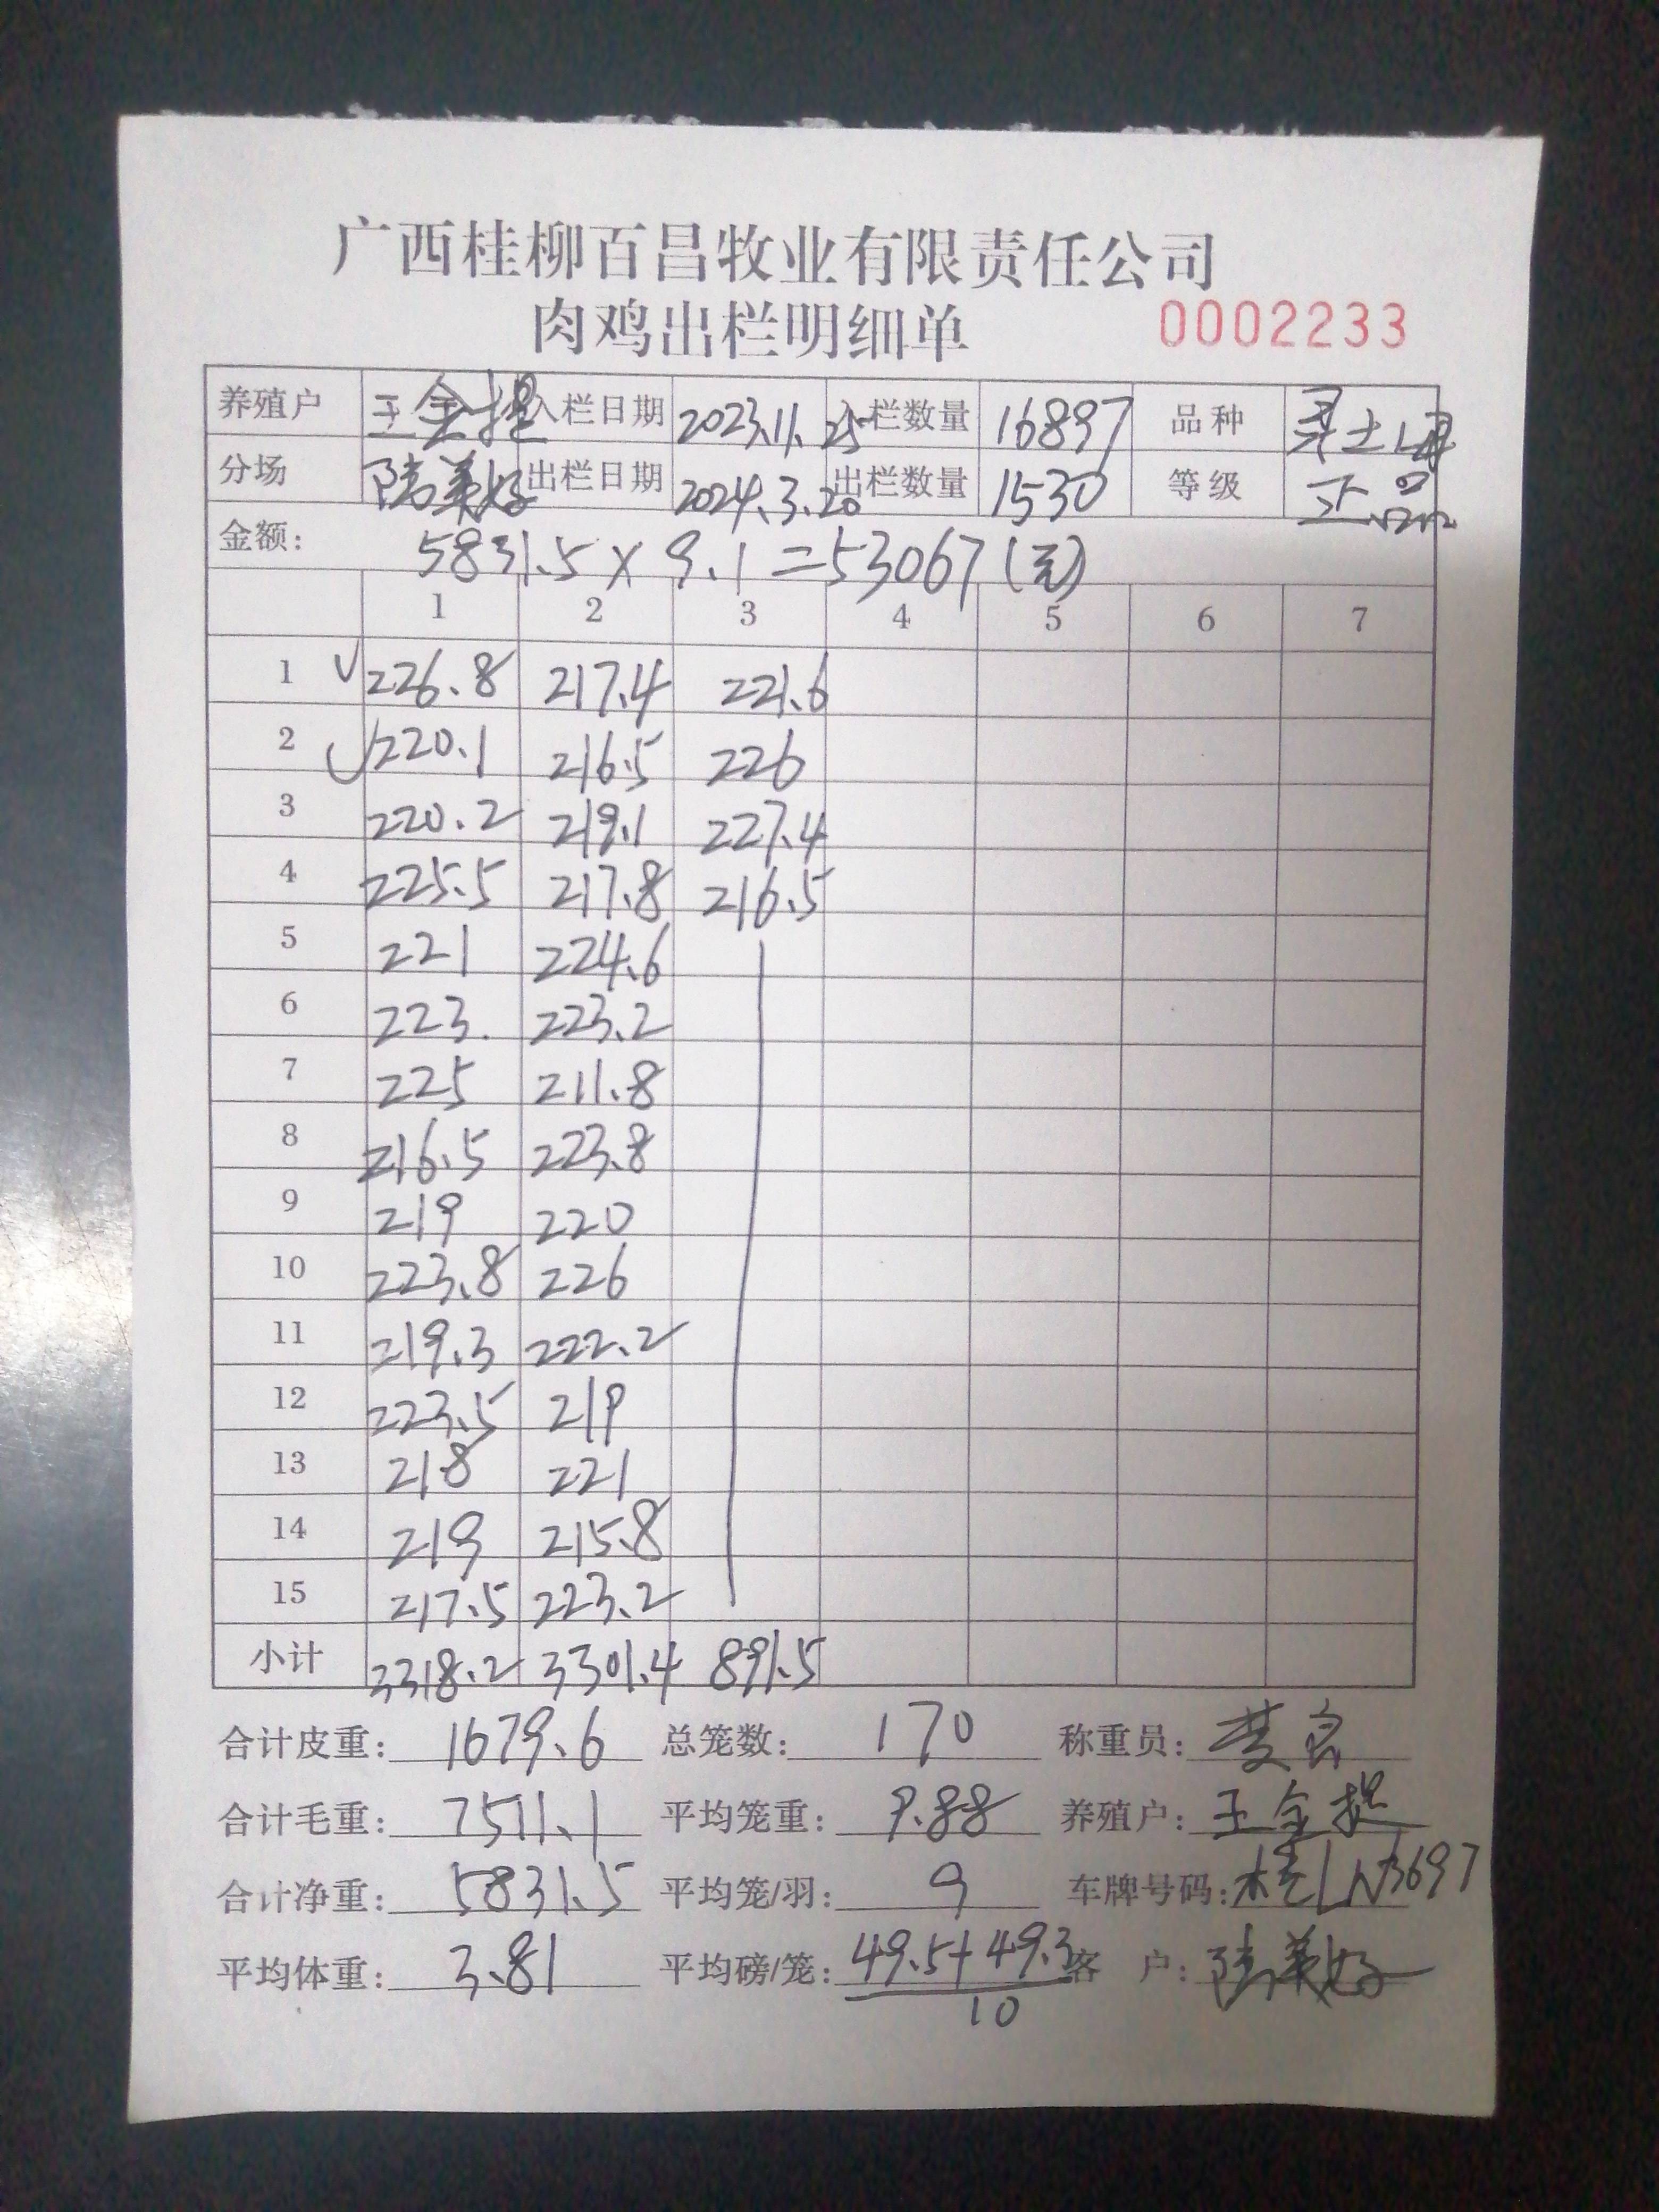 广西桂柳百昌牧业有限责任公司
肉鸡出栏明细单 0002233
养殖户 王金提 入栏日期 2023.11.25 入栏数量 16897 品种 土
分场 陆美好 出栏日期 2024.3.20 出栏数量 1530 等级 正品
金额: 5831.5 × 9.1 = 53067 (元)
1 2 3 4 5 6 7
1 226.8 217.4 221.6
2 220.1 216.5 226
3 220.2 219.1 227.4
4 225.5 217.8 216.5
5 221 224.6
6 223. 223.2
7 225 211.8
8 216.5 223.8
9 219 220
10 223.8 226
11 219.3 222.2
12 223.5 219
13 218 221
14 219 215.8
15 217.5 223.2
小计 3318.2 3301.4 891.5
合计皮重: 1679.6 总笼数: 170 称重员:
合计毛重: 7511.1 平均笼重: 9.88 养殖户: 王金提
合计净重: 5831.5 平均笼/羽: 9 车牌号码: 桂LN3697
平均体重: 3.81 平均磅/笼: 49.5+49.3 客 户: 陆美好
10